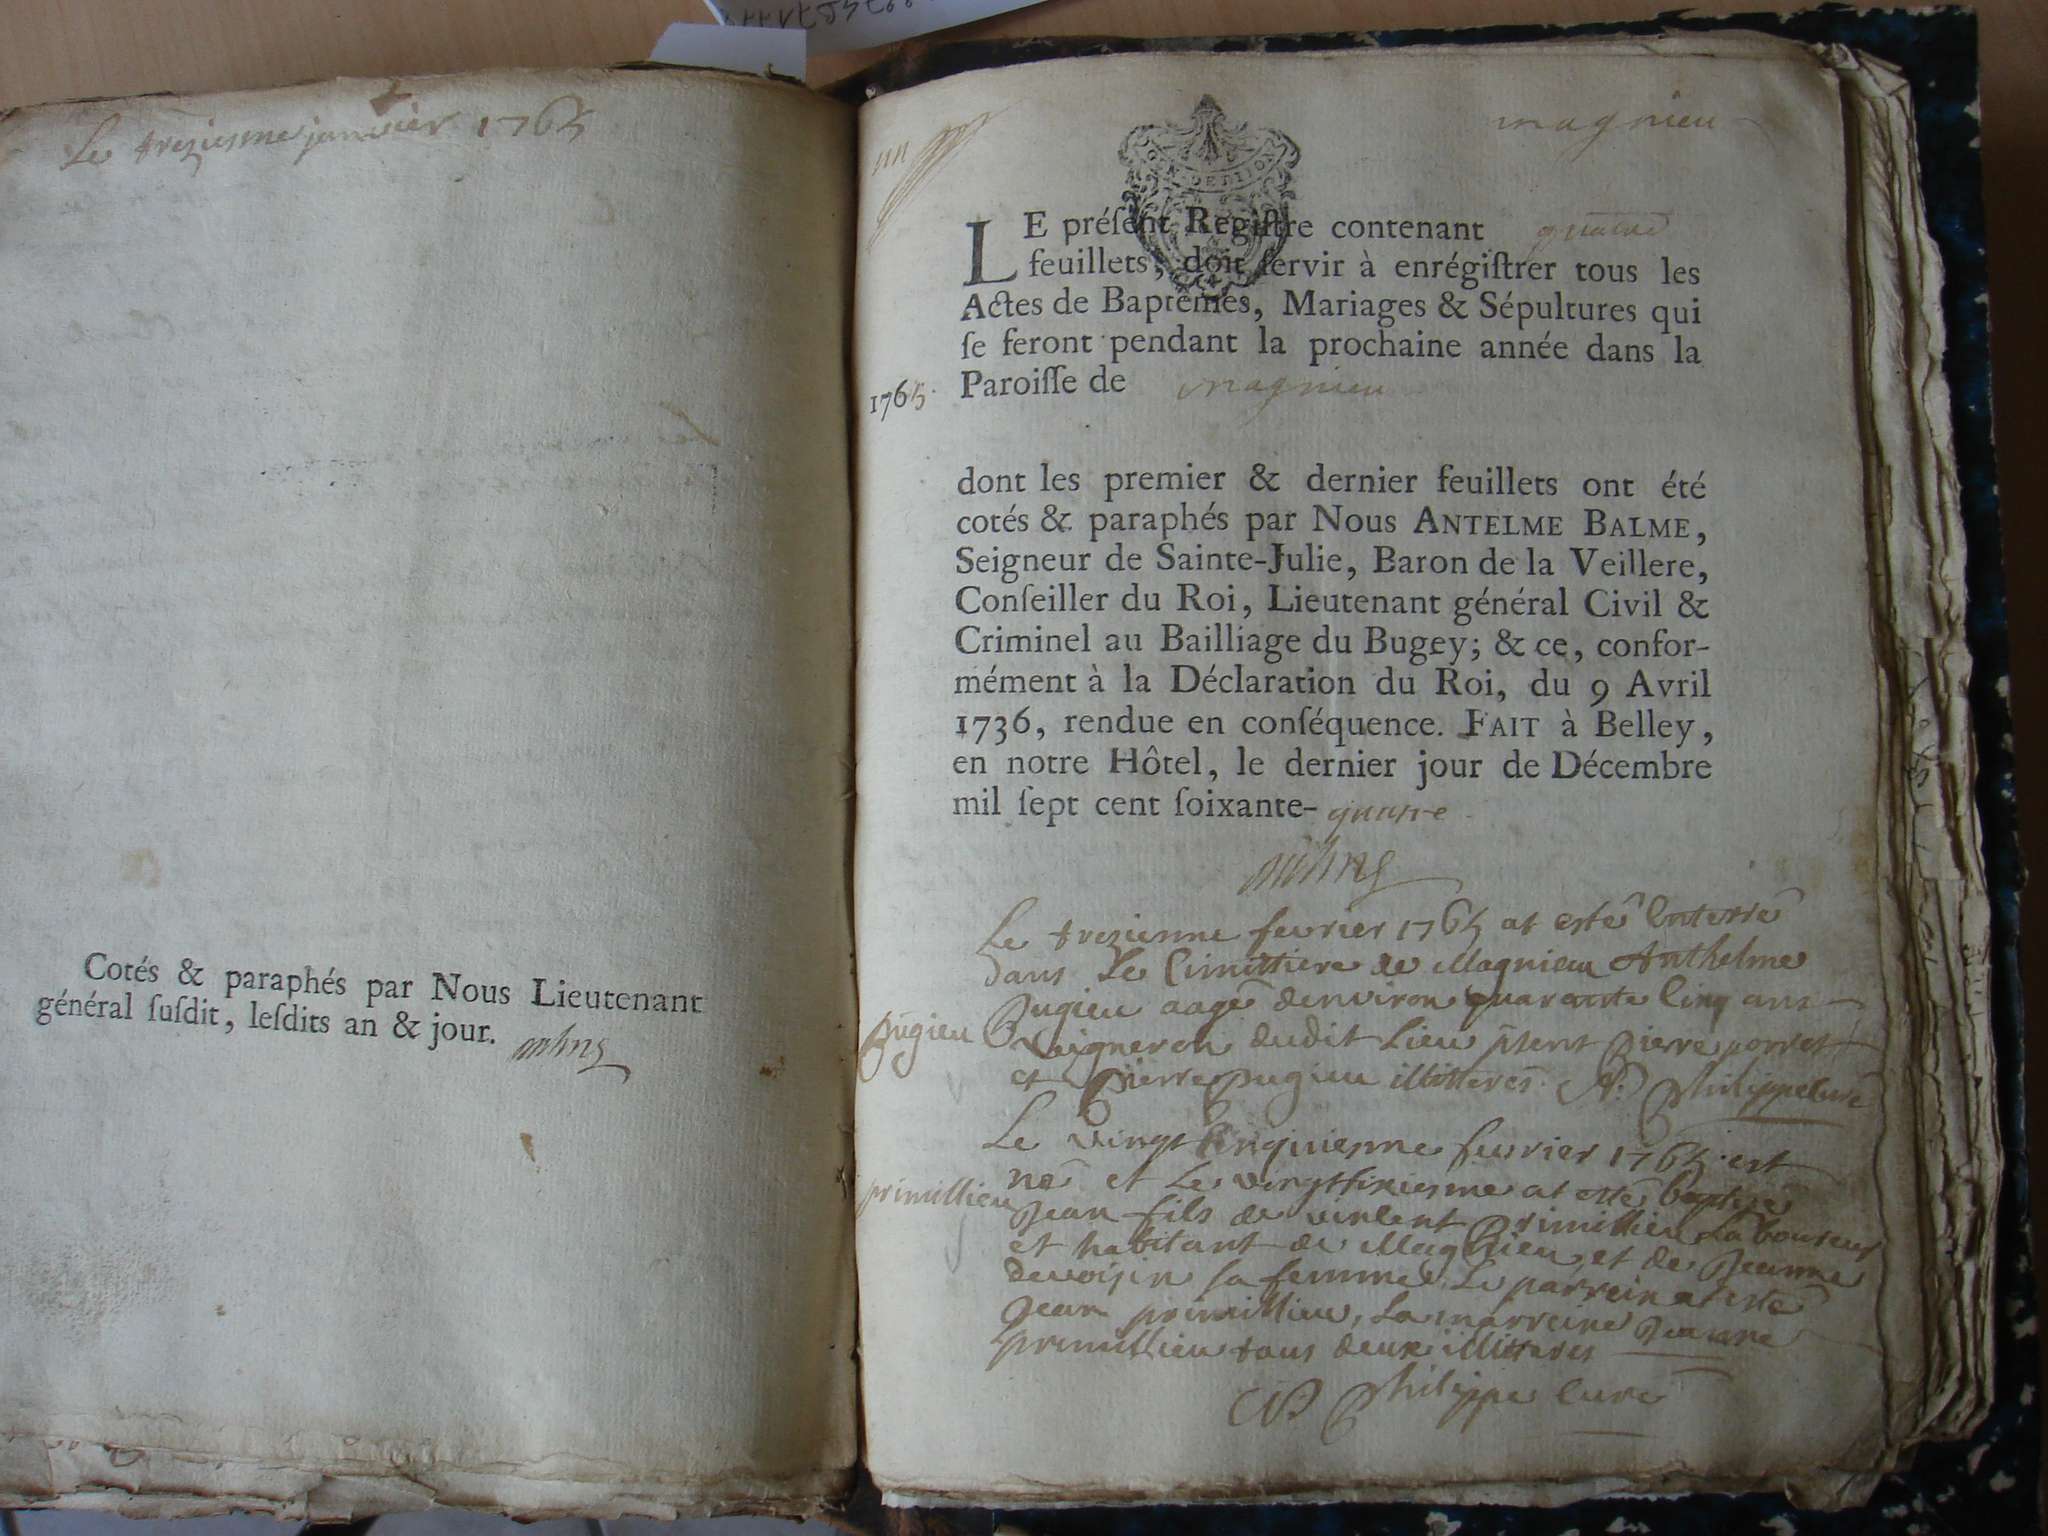 Le tresiesme janvier 1765
Cotés & paraphés par Nous Lieutenant
général ſuſdit, leſdits an & jour.
magnieu
LE préſent Regiſtre contenant quatre
feuillets, doit ſervir à enrégiſtrer tous les
Actes de Baptêmes, Mariages & Sépultures qui
ſe feront pendant la prochaine année dans la
1765. Paroiſſe de magnieu
dont les premier & dernier feuillets ont été
cotés & paraphés par Nous ANTELME BALME,
Seigneur de Sainte-Julie, Baron de la Veillere,
Conſeiller du Roi, Lieutenant général Civil &
Criminel au Bailliage du Bugey; & ce, confor-
mément à la Déclaration du Roi, du 9 Avril
1736, rendue en conſéquence. FAIT à Belley,
en notre Hôtel, le dernier jour de Décembre
mil ſept cent ſoixante-quatre
Le tresienne fevrier 1765 at esté Enterré
dans Le Cimittiere de Magnieu Anthelme
Pugieu aagé denviron quarante Cinq ans
pugieu
Vaigneron dudit Lieu pñent Pierre porret
et Pierre Pugieu illitterés. N: Philippe Curé
Le vingt Cinquiesme fevrier 1765 est
né et Le vingt sixiesme at esté baptisé
primillieu
Jean fils de vincent Primillieu Laboureur
et habitant de Magnieu et de Jeanne
devoisin sa femme, Le parrein at esté
Jean primillieu, La marreine Jeanne
primillieu tous deux illitterés
N: Philippe Curé